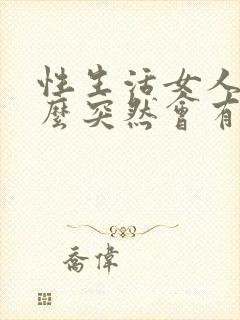 性生活女人
麼突然會有
喬偉